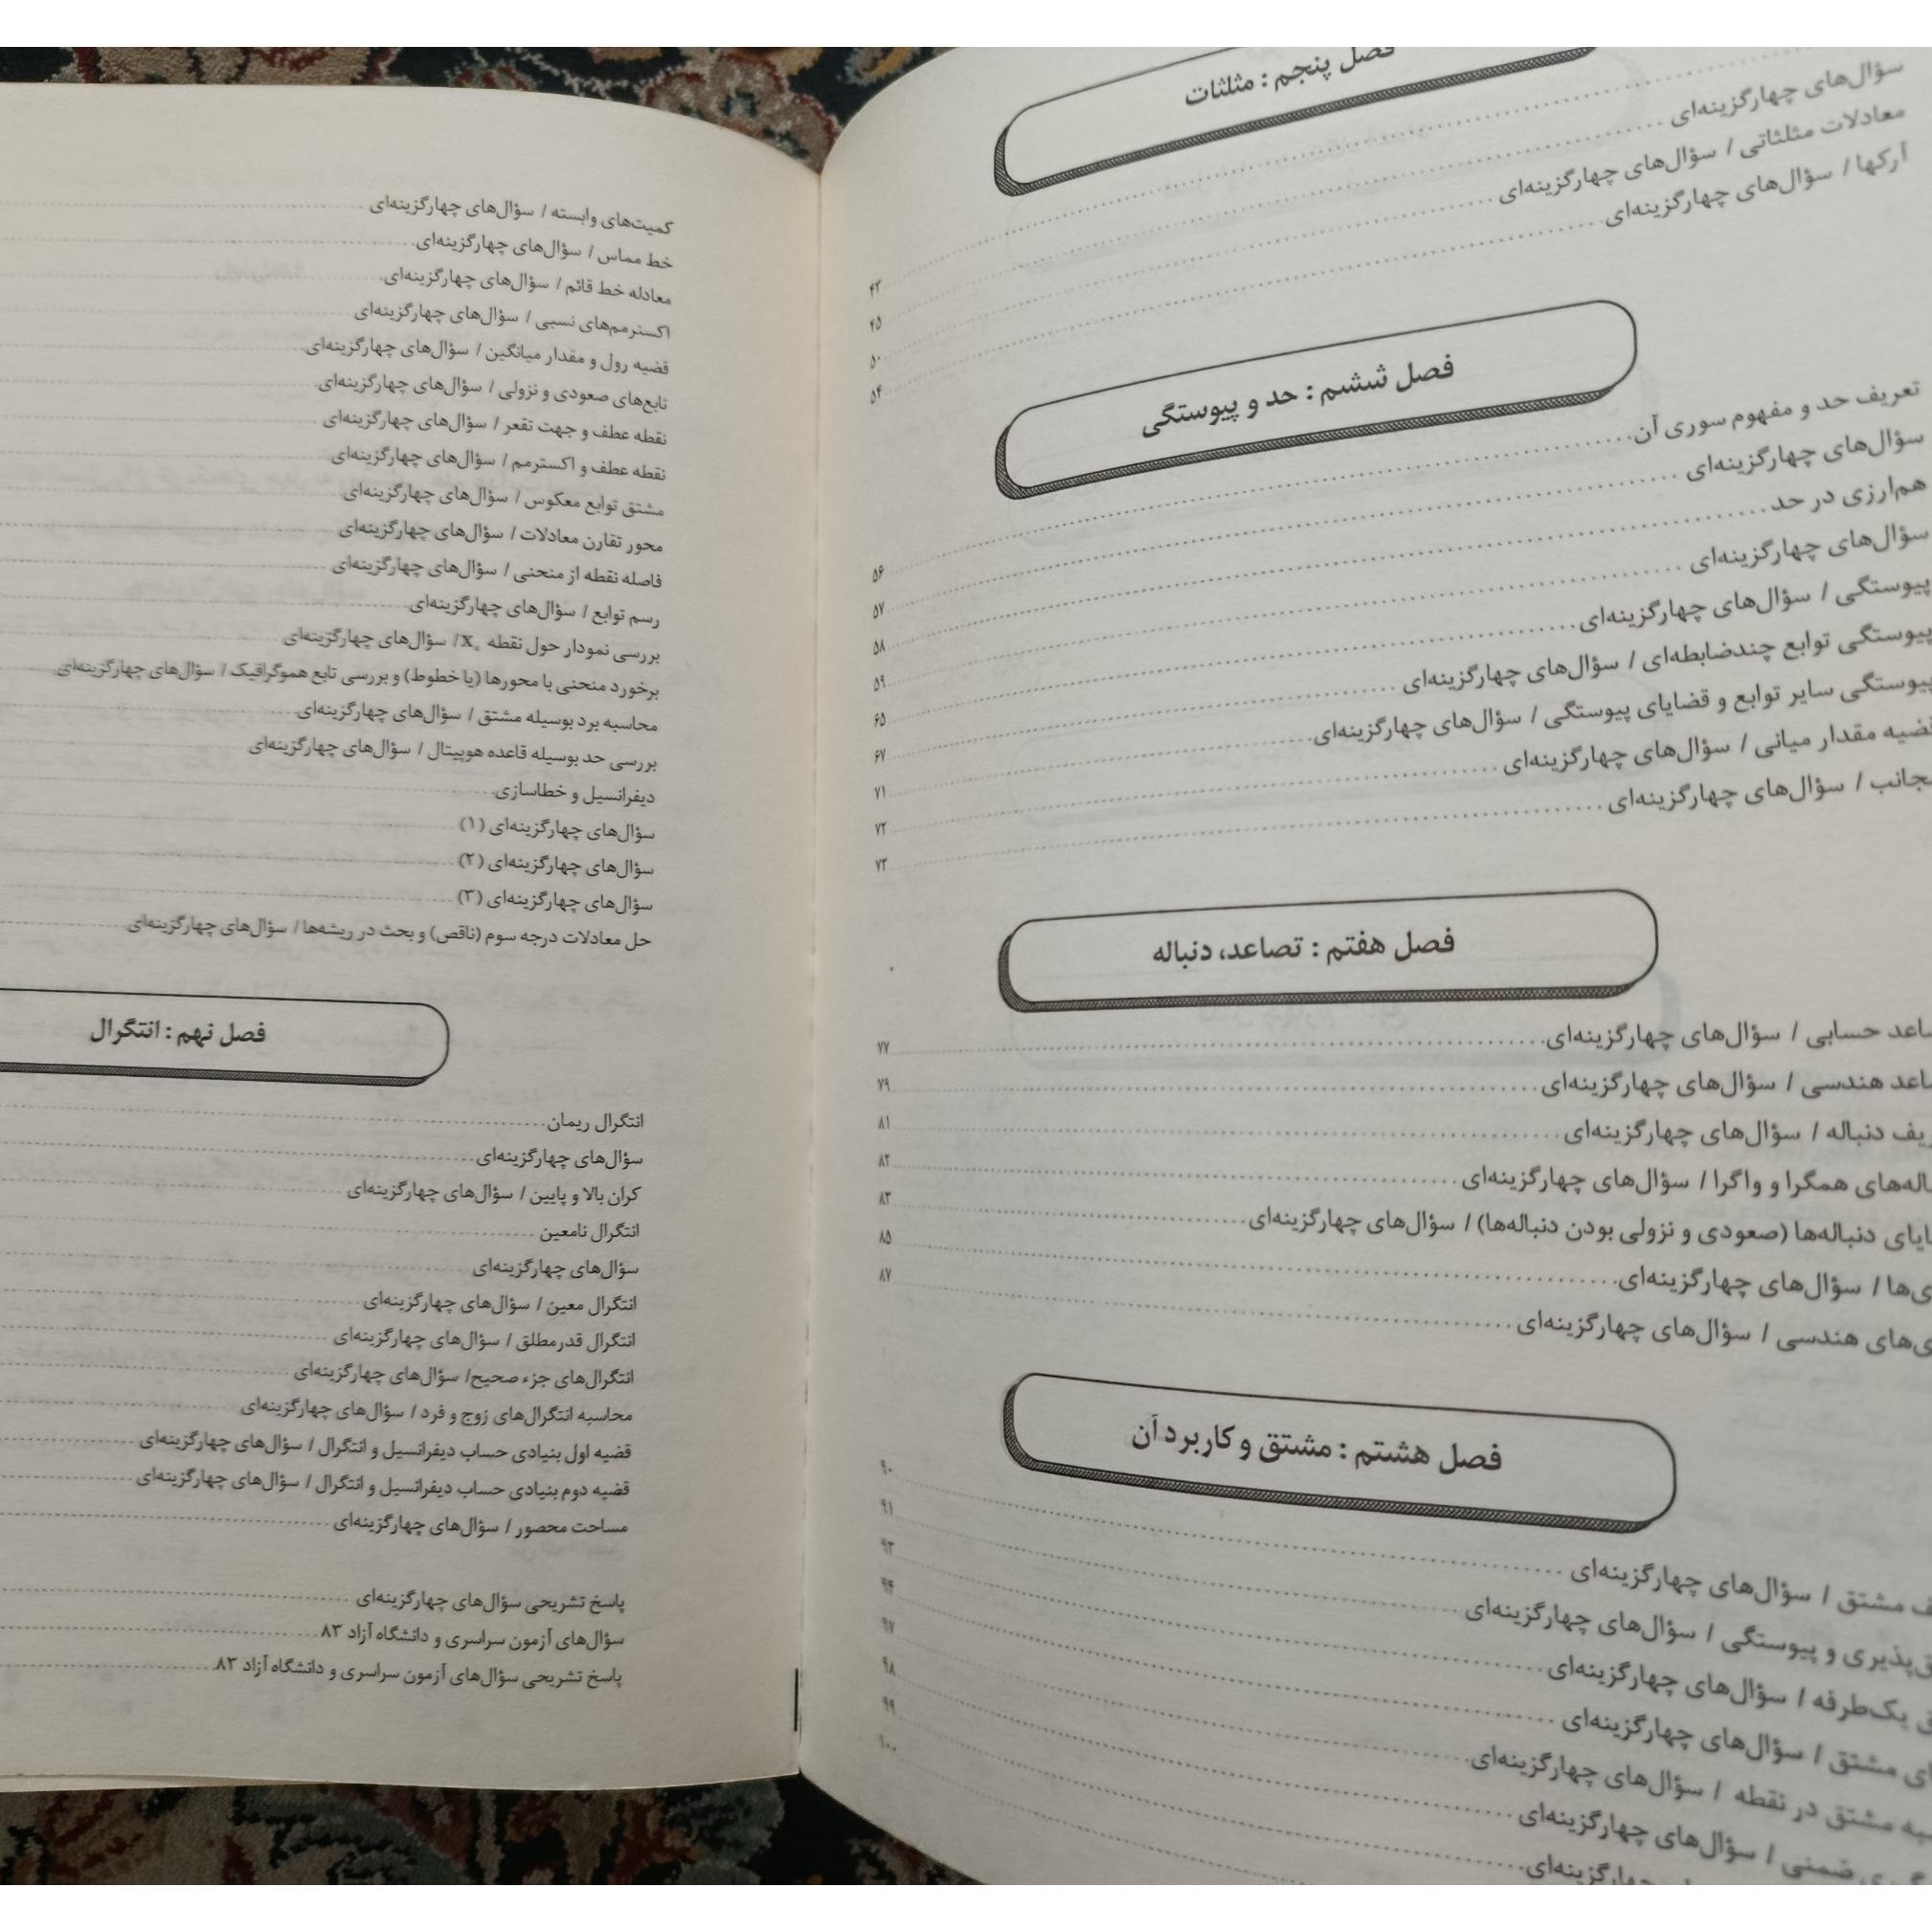 فصل پنجم : مثلثات
سؤال‌های چهارگزینه‌ای
معادلات مثلثاتی / سؤال‌های چهارگزینه‌ای
آرکها / سؤال‌های چهارگزینه‌ای
۴۳
۴۵
۵۰
۵۴
فصل ششم : حد و پیوستگی
تعریف حد و مفهوم سوری آن
سؤال‌های چهارگزینه‌ای
هم‌ارزی در حد
سؤال‌های چهارگزینه‌ای
پیوستگی / سؤال‌های چهارگزینه‌ای
پیوستگی توابع چندضابطه‌ای / سؤال‌های چهارگزینه‌ای
پیوستگی سایر توابع و قضایای پیوستگی / سؤال‌های چهارگزینه‌ای
مقدار میانی / سؤال‌های چهارگزینه‌ای
/ سؤال‌های چهارگزینه‌ای
۵۶
۵۷
۵۸
۵۹
۶۵
۶۷
۷۱
۷۲
۷۳
فصل هفتم : تصاعد، دنباله
حسابی / سؤال‌های چهارگزینه‌ای
هندسی / سؤال‌های چهارگزینه‌ای
دنباله / سؤال‌های چهارگزینه‌ای
همگرا و واگرا / سؤال‌های چهارگزینه‌ای
دنباله‌ها (صعودی و نزولی بودن دنباله‌ها) / سؤال‌های چهارگزینه‌ای
/ سؤال‌های چهارگزینه‌ای
هندسی / سؤال‌های چهارگزینه‌ای
۷۷
۷۹
۸۱
۸۲
۸۳
۸۵
۸۷
فصل هشتم : مشتق و کاربرد آن
مشتق / سؤال‌های چهارگزینه‌ای
و پیوستگی / سؤال‌های چهارگزینه‌ای
یک‌طرفه / سؤال‌های چهارگزینه‌ای
مشتق / سؤال‌های چهارگزینه‌ای
مشتق در نقطه / سؤال‌های چهارگزینه‌ای
ضمنی / سؤال‌های چهارگزینه‌ای
چهارگزینه‌ای
۹۰
۹۱
۹۳
۹۴
۹۷
۹۸
۹۹
۱۰۰
کمیت‌های وابسته / سؤال‌های چهارگزینه‌ای
خط مماس / سؤال‌های چهارگزینه‌ای
معادله خط قائم / سؤال‌های چهارگزینه‌ای
اکسترمم‌های نسبی / سؤال‌های چهارگزینه‌ای
قضیه رول و مقدار میانگین / سؤال‌های چهارگزینه‌ای
تابع‌های صعودی و نزولی / سؤال‌های چهارگزینه‌ای
نقطه عطف و جهت تقعر / سؤال‌های چهارگزینه‌ای
نقطه عطف و اکسترمم / سؤال‌های چهارگزینه‌ای
مشتق توابع معکوس / سؤال‌های چهارگزینه‌ای
محور تقارن معادلات / سؤال‌های چهارگزینه‌ای
فاصله نقطه از منحنی / سؤال‌های چهارگزینه‌ای
رسم توابع / سؤال‌های چهارگزینه‌ای
بررسی نمودار حول نقطه X۰ / سؤال‌های چهارگزینه‌ای
برخورد منحنی با محورها (یا خطوط) و بررسی تابع هموگرافیک / سؤال‌های چهارگزینه‌ای
محاسبه برد بوسیله مشتق / سؤال‌های چهارگزینه‌ای
بررسی حد بوسیله قاعده هوپیتال / سؤال‌های چهارگزینه‌ای
دیفرانسیل و خطاسازی
سؤال‌های چهارگزینه‌ای (۱)
سؤال‌های چهارگزینه‌ای (۲)
سؤال‌های چهارگزینه‌ای (۳)
حل معادلات درجه سوم (ناقص) و بحث در ریشه‌ها / سؤال‌های چهارگزینه‌ای
فصل نهم : انتگرال
انتگرال ریمان
سؤال‌های چهارگزینه‌ای
کران بالا و پایین / سؤال‌های چهارگزینه‌ای
انتگرال نامعین
سؤال‌های چهارگزینه‌ای
انتگرال معین / سؤال‌های چهارگزینه‌ای
انتگرال قدرمطلق / سؤال‌های چهارگزینه‌ای
انتگرال‌های جزء صحیح / سؤال‌های چهارگزینه‌ای
محاسبه انتگرال‌های زوج و فرد / سؤال‌های چهارگزینه‌ای
قضیه اول بنیادی حساب دیفرانسیل و انتگرال / سؤال‌های چهارگزینه‌ای
قضیه دوم بنیادی حساب دیفرانسیل و انتگرال / سؤال‌های چهارگزینه‌ای
مساحت محصور / سؤال‌های چهارگزینه‌ای
پاسخ تشریحی سؤال‌های چهارگزینه‌ای
سؤال‌های آزمون سراسری و دانشگاه آزاد ۸۳
پاسخ تشریحی سؤال‌های آزمون سراسری و دانشگاه آزاد ۸۳